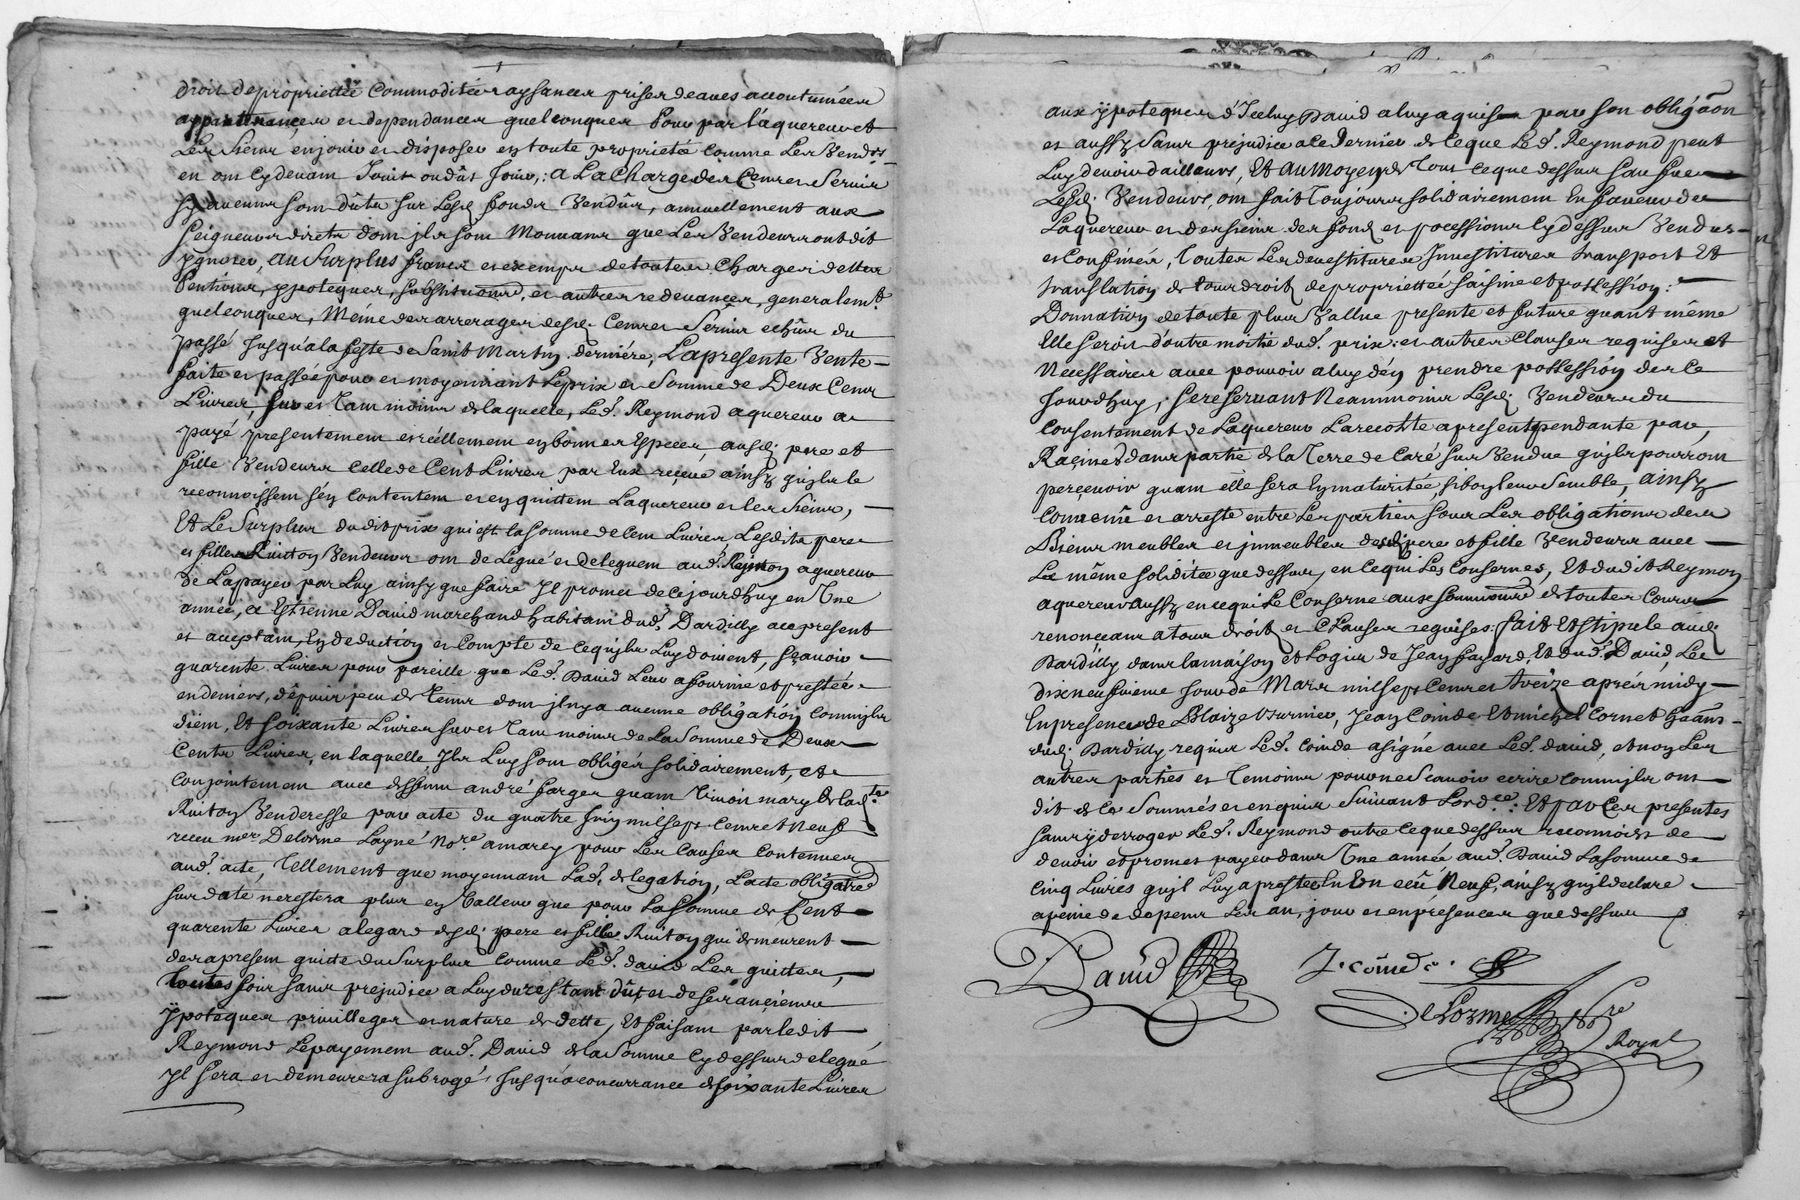 droit de proprietté Commoditée aysances prises deaues accoutumées
appartenances et dependances quelconques Pour par l'aquereur et
Les Siens en jouir et disposer en toute proprieté comme Les Vendrs
en ont Cydevant Jouit ou dût Jouir, : a La Charge des Cens et Servis
sy aucuns sont dûts sur Lesd. fonds Vendus, annuellement aux
Seigneurs directs dont jls sont Mouvans que Les Vendeurs ont dit
ygnorer, au Surplus francs et exempt de toutes Charges dettes
Pentions, ypoteques, substitutions, et autres redevances, generalemt.
quelconques, Méme des arrerages desd. Cens et Servis echûs du
passé Jusqu'a la feste de Saint Martin derniére, La presente Vente
faite et passée pour et moyennant Le prix et Somme de Deux Cens
Livres, sur et tant moins de laquelle, Led. Reymond aquereur a
payé presentement et réellement en bonnes Especes, ausd. pere et
fille Vendeurs Celle de Cent Livres par Eux reçue ainsy qu'ils le
reconnoissent s'en Contentent et en quittent L'aquereur et les Siens,
Et Le Surplus dudit prix qui est la somme de Cent Livres Lesdits pere
et fille Ruitton Vendeurs ont de Légué et deleguent aud. Reymon aquereur
de La payer par Luy ainsy que faire Jl promet de cejourdhuy en Une
année, a Estienne David marchand habitant dud. Dardilly acce present
et acceptant, En deduction et Compte de cequ'ils Luy doivent, sçavoir
quarente Livres pour pareille que Led. David Leur a fournie et prestée
en deniers, dépuis peu de Tems dont jl n'y a aucune obligation Comm'jls
disent, Et soixante Livres sur et Tant moins de La Somme de Deux
Cents Livres, en laquelle, Jls Luy sont obligés solidairement, et
conjointement avec deffunt andré farges quant vivoit mary de lad.
Ruiton Venderesse par acte du quatre Juin mil sept Cens et Neuf
receu me Delorme Layné Nore. amarey pour Les Causes Contenues
aud. acte, Tellement que moyennant Lad. delegation, L'acte obligatoire
sus daté ne restera plus en Valleur que pour La Somme de Cent
quarente Livres a legard desd. pere et fille Ruiton qui demeurent
des apresent quitte du Surplus Comme Led. david Les quittes,
toutes fois sans prejudice a Luy du restant dût et de ses anciennes
ypoteques privilleges et nature de dette, Et faisant par ledit
Reymond Le payement aud. David de la Somme Cy dessus deleguée
Jl sera et demeurera subrogé, Jusqu'a concurrance de soixante Livres
aux ypoteques d'Jceluy David a luy aquises par son obligãon
et aussy Sans prejudice a ce Dernier de ceque Led. Reymond peut
Luy devoir d'ailleurs, Et au Moyen de Tout ceque dessus
Lesd. Vendeurs, ont fait Toujours solidairement En faveur de
L'aquereur et des siens des fonds et possessions Cy dessus Vendus
et Confinés, Toutes Les devestitures Jnvestitures transport Et
translation de tour droit de proprietté saisine et possession :
Donnation de toute plus Vallue presente et future quant même
Elle seroit d'outre moitié dud. prix : et autres Clauses requises et
Necessaires avec pouvoir a luy d'en prendre possession des Ce
Jourdhuy, se reservant Neanmoins Lesd. Vendeurs du
Consentement de L'aquereur La recolte apresent pendante par,
Racines dans partie de la Terre de Caré sus Vendue qu'ils pourront
perçevoir quant elle sera En maturitée, si bon leur Semble, ainsy
Convenû et arresté entre Les parties sous Les obligations des
Biens meubles et jmmeubles desd. pere et fille Vendeurs avec
La même soliditée que dessus, en cequi Les Conserne, Et dudit Reymon
aquereur aussy en cequi Le Conserne aux soumissions de toutes Cours
renonceant a tous droits et Clauses requises fait Et stipulé aud.
Dardilly dans la maison et logis de Jean fayard, Et dud. David, Le
dixneufvieme Jour de Mars mil sept Cens et treize aprés midy
En presence de Blaize Vurnier, Jean Coinde Et michel Cornet habitans
dud. Dardilly requis Led. Coinde a signé avec Led. david, et non Les
autres parties et Temoins pour ne Scavoir ecrire Comm'jls ont
dit de ce Sommés et enquis Suivant Lord.ce : Et par Ces presentes
sans y derroger Led. Reymond outre ceque dessus reconnoist de
devoir et promet payer dans Une année aud. David La somme de
Cinq Livres qu'jl Luy a prestée En Un ecû Neuf, ainsy qu'jl declare
a peine de depens Les an, jour et en presences que dessus
David
J. coinde
Delorme Nore
Royal